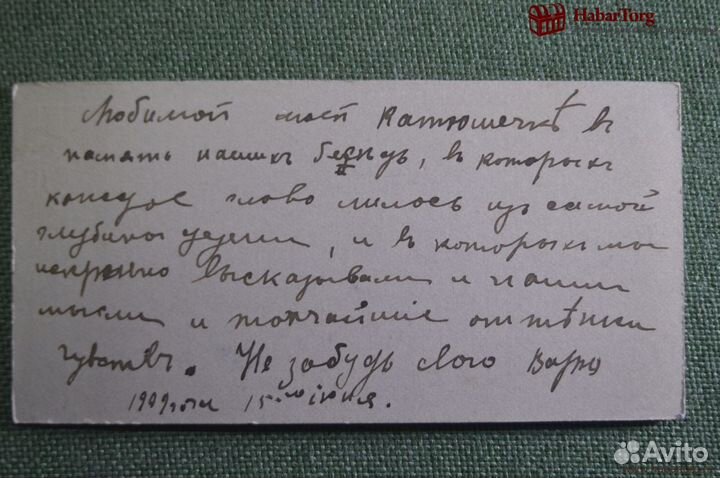 HabarTorg
Любимой моей Катюшечкѣ въ
память нашихъ бесѣдъ, въ которыхъ
каждое слово лилось изъ самой
глубины души, и въ которыхъ мы
искренно высказывали и наши
мысли и тончайшіе оттѣнки
чувствъ. Не забудь свою Варю
1909 года 15го іюня.
Avito